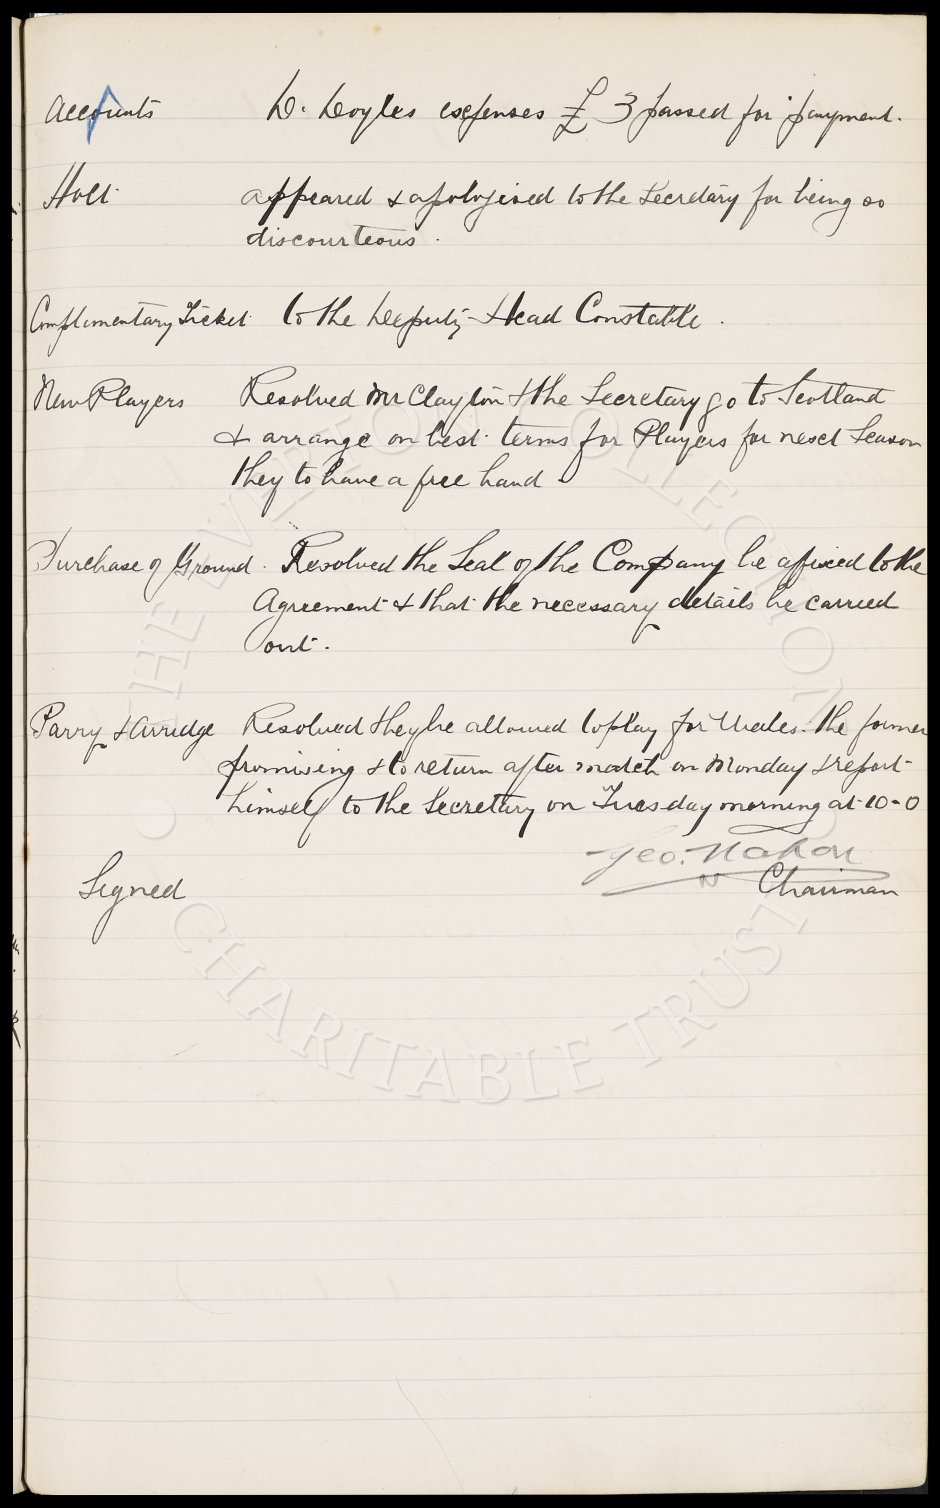 Accounts D. Doyles expenses £3 passed for payment.
Holt appeared & apologised to the Secretary for being so
discourteous.
Complimentary Ticket to the Deputy Head Constable.
New Players Resolved Mr Clayton & the Secretary go to Scotland
& arrange on best terms for Players for next Season
they to have a free hand
Purchase of Ground. Resolved the Seal of the Company be affixed to the
Agreement & that the necessary details be carried
out.
Parry & Arridge Resolved they be allowed to play for Wales. the former
promising to return after match on Monday & report
himself to the Secretary on Tuesday morning at 10-0
Geo. Mahon
Signed Chairman
THE EVERTON COLLECTION
CHARITABLE TRUST